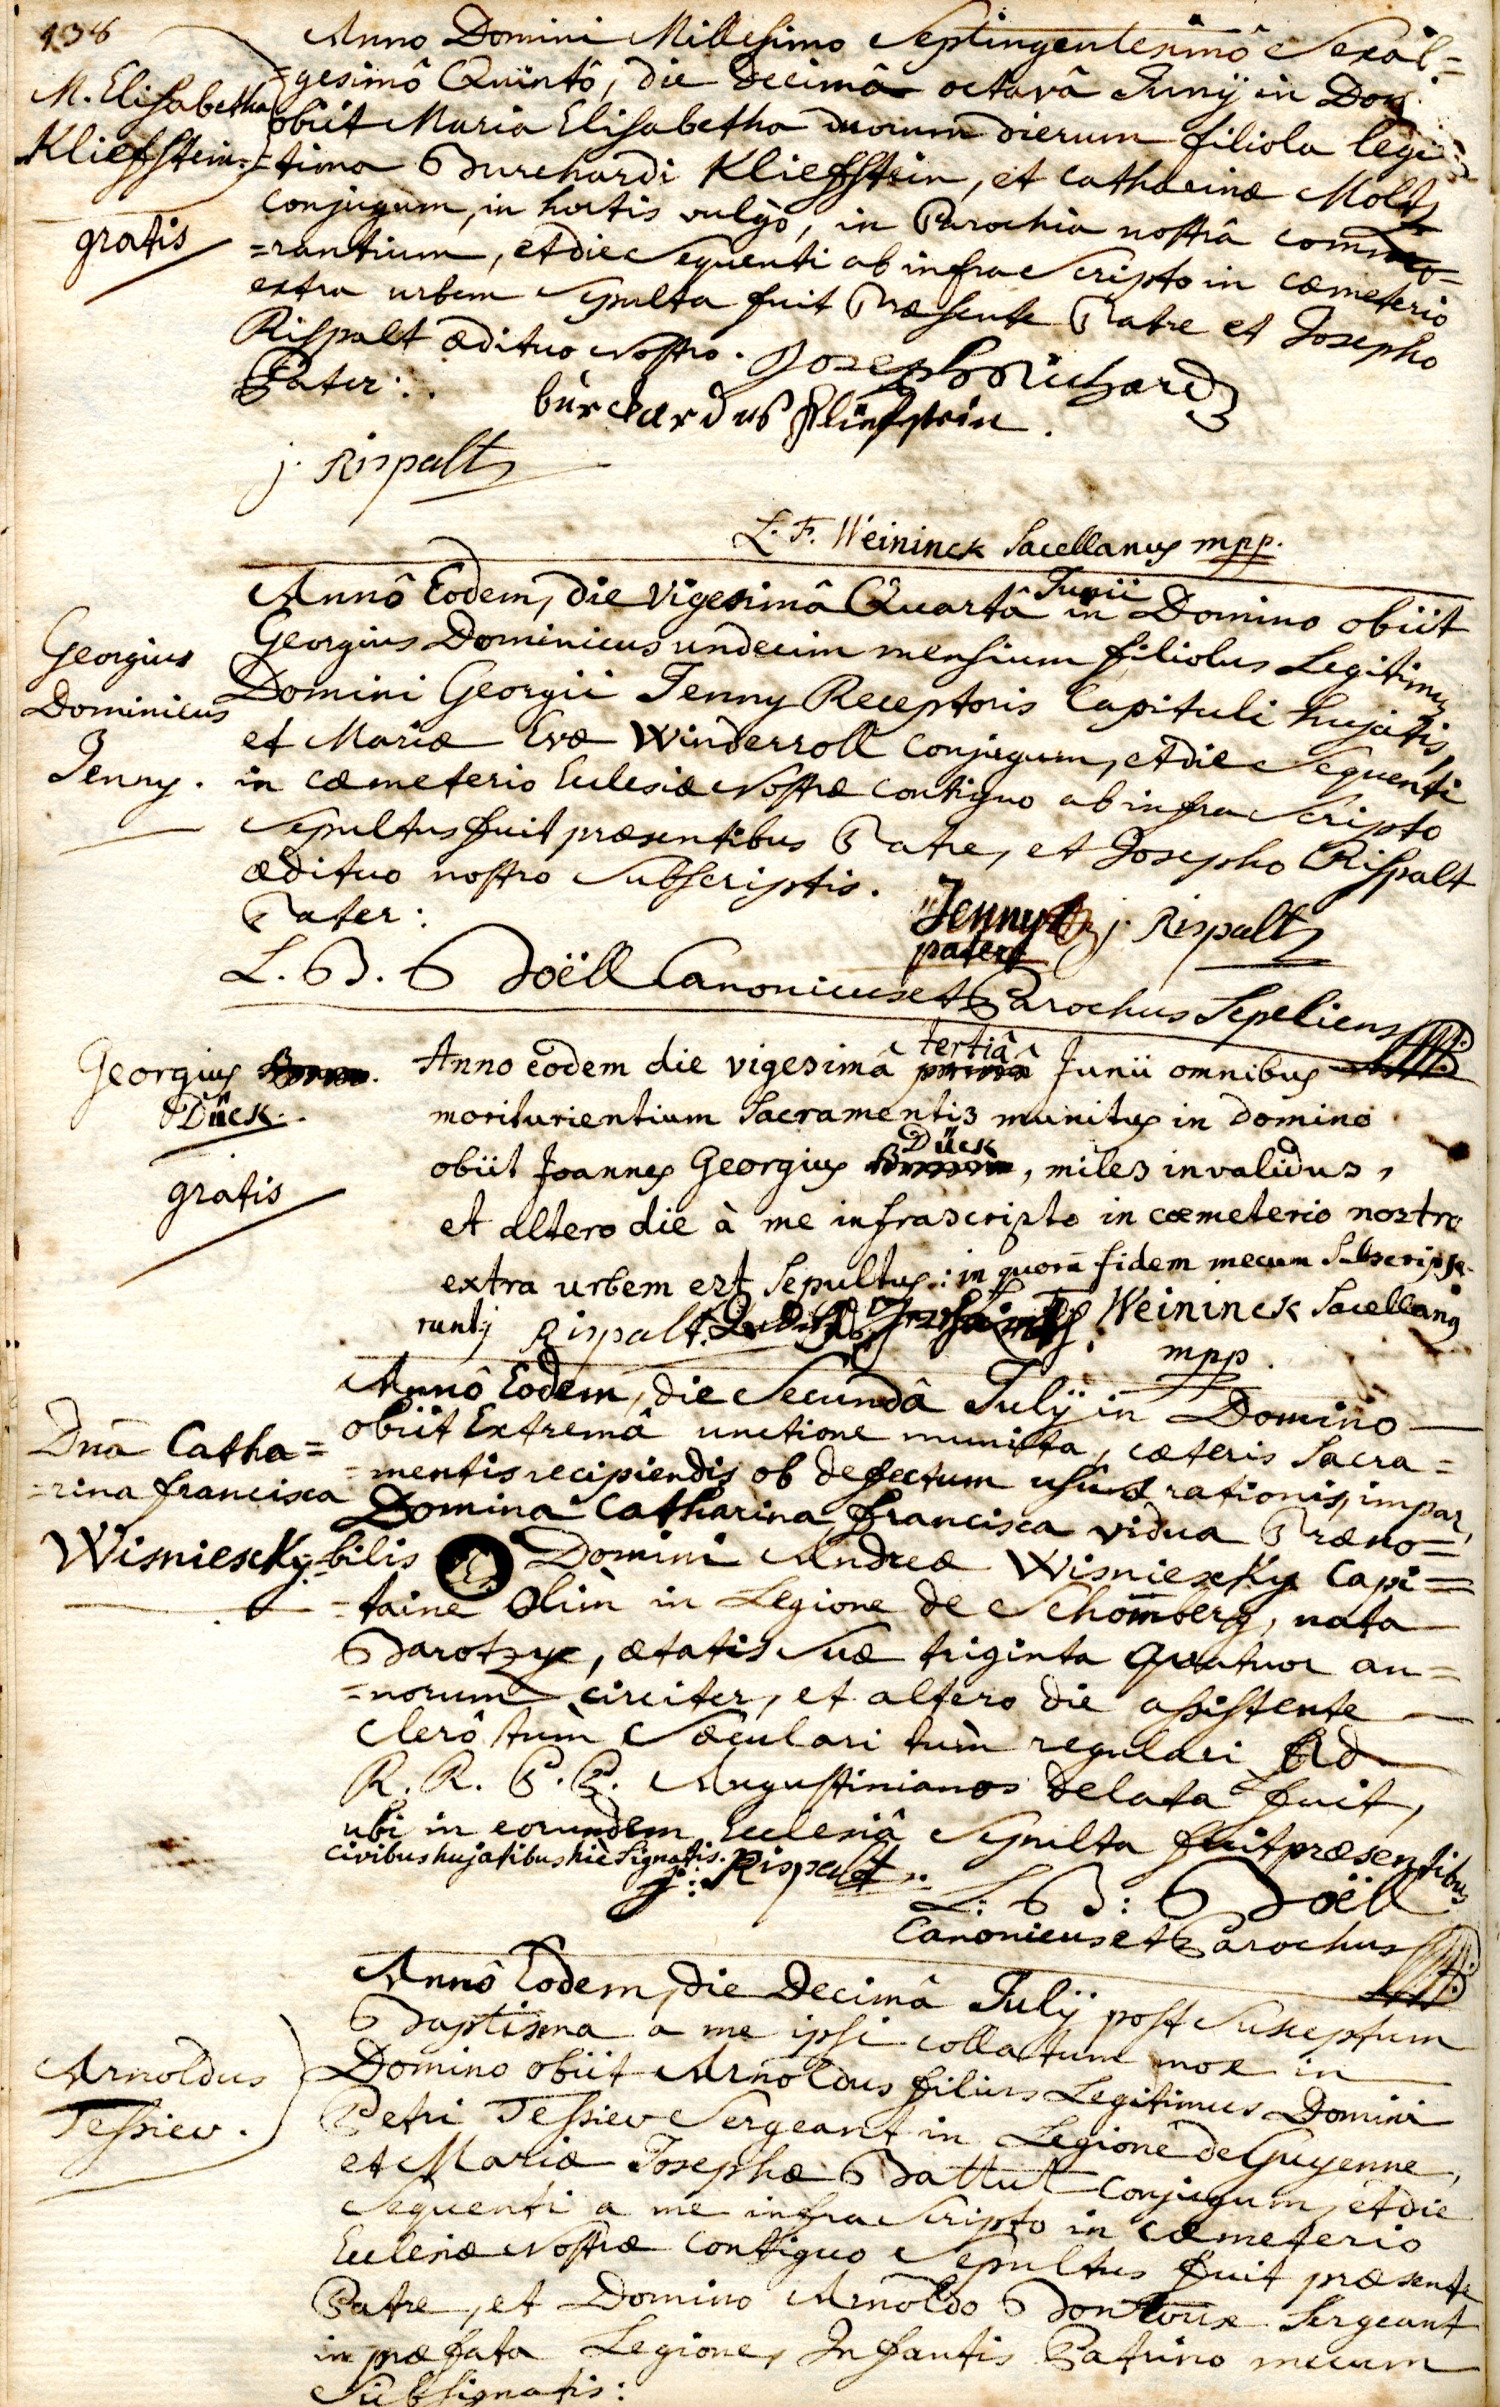 138
M. Elisabetha
Klieffstein.
gratis
Anno Domini Millesimo Septingentesimô Sexa=
=gesimô Quintô, die decimâ octavâ Junÿ in Dom̄.
obiit Maria Elisabetha duorum dierum filiola legi
=tima Burchardi Klieffstein, et catharinæ Moltz
Conjugum, in hortis vulgò, in Parochia nostrâ commo=
=rantium, et die Sequenti ab infra Scripto in cæmeterio
extra urbem Sepulta fuit Præsente Patre et Josepho
Rispalt ædituo Nostro. Joseph Richard
Pater:
burchardus Kliefstein.
j. Rispalt
L. F. Weininck Sacellanus mpp.
Georgius
Dominicus
Jenny.
Annô Eodem, die Vigesimâ Quartâ Junii in Domino obiit
Georgius Dominicus undecim mensium filiolus Legitimus
Domini Georgii Jenny Receptoris Capituli hujatis,
et Mariæ Evæ Winderroll conjugum, et die Sequenti
in cæmeterio Ecclesiæ Nostræ contiguo ab infra Scripto
Sepultus fuit præsentibus Patre, et Josepho Rispalt
ædituo nostro Subscriptis.
Pater:
Jenny
pater
j. Rispalt
L. B. Boëll Canonicus et Parochus Sepeliens
Georgius
Dück.
gratis
Anno eodem die vigesimâ tertiâ Junii omnibus
moriturientium Sacramentis munitus in Domino
obiit Joannes Georgius Dück, miles invalidus,
et altero die à me infrascripto in cœmeterio nostro
extra urbem est Sepultus: in quorū fidem mecum Subscripse-
runt j Rispalt. Weininck Sacellang
mpp.
Dnā Catha=
=rina francisca
Wisniescky.
Annô Eodem, die Secundâ Julÿ in Domino
obiit Extremâ unctione munita, cæteris Sacra=
=mentis recipiendis ob defectum usûs rationis, impar,
Domina Catharina, francisca vidua Præno=
=bilis Domini Andreæ Wisniescky Capi=
=taine Olim in Legione de Schomberg, nata
Barotzy, ætatis Suæ triginta Quatuor an=
=norum circiter, et altero die assistente
Clerô tùm Sæculari tùm regulari Ad
R. R. P. P. Augustinianos delata fuit,
ubi in eorundem Ecclesiâ Sepulta fuit præsentibus
civibus hujatibus hic Signatis. j: Rispalt.
L: B: Boëll
Canonicus et Parochus
Arnoldus
Tessier.
Annô Eodem, die Decimâ Julÿ post Susceptum
Baptisma a me ipsi collactum mox in
Domino obiit Arnoldus filius Legitimus Domini
Petri Tessier Sergeant in Legione de Guyenne,
et Mariæ Josephæ Battut Conjugum, et die
Sequenti a me infra Scripto in cæmeterio
Ecclesiæ Nostræ contiguo Sepultus fuit præsente
Patre, et Domino Arnoldo Sergeant
in præfata Legione, Infantis Patrino mecum
Subsignatis: